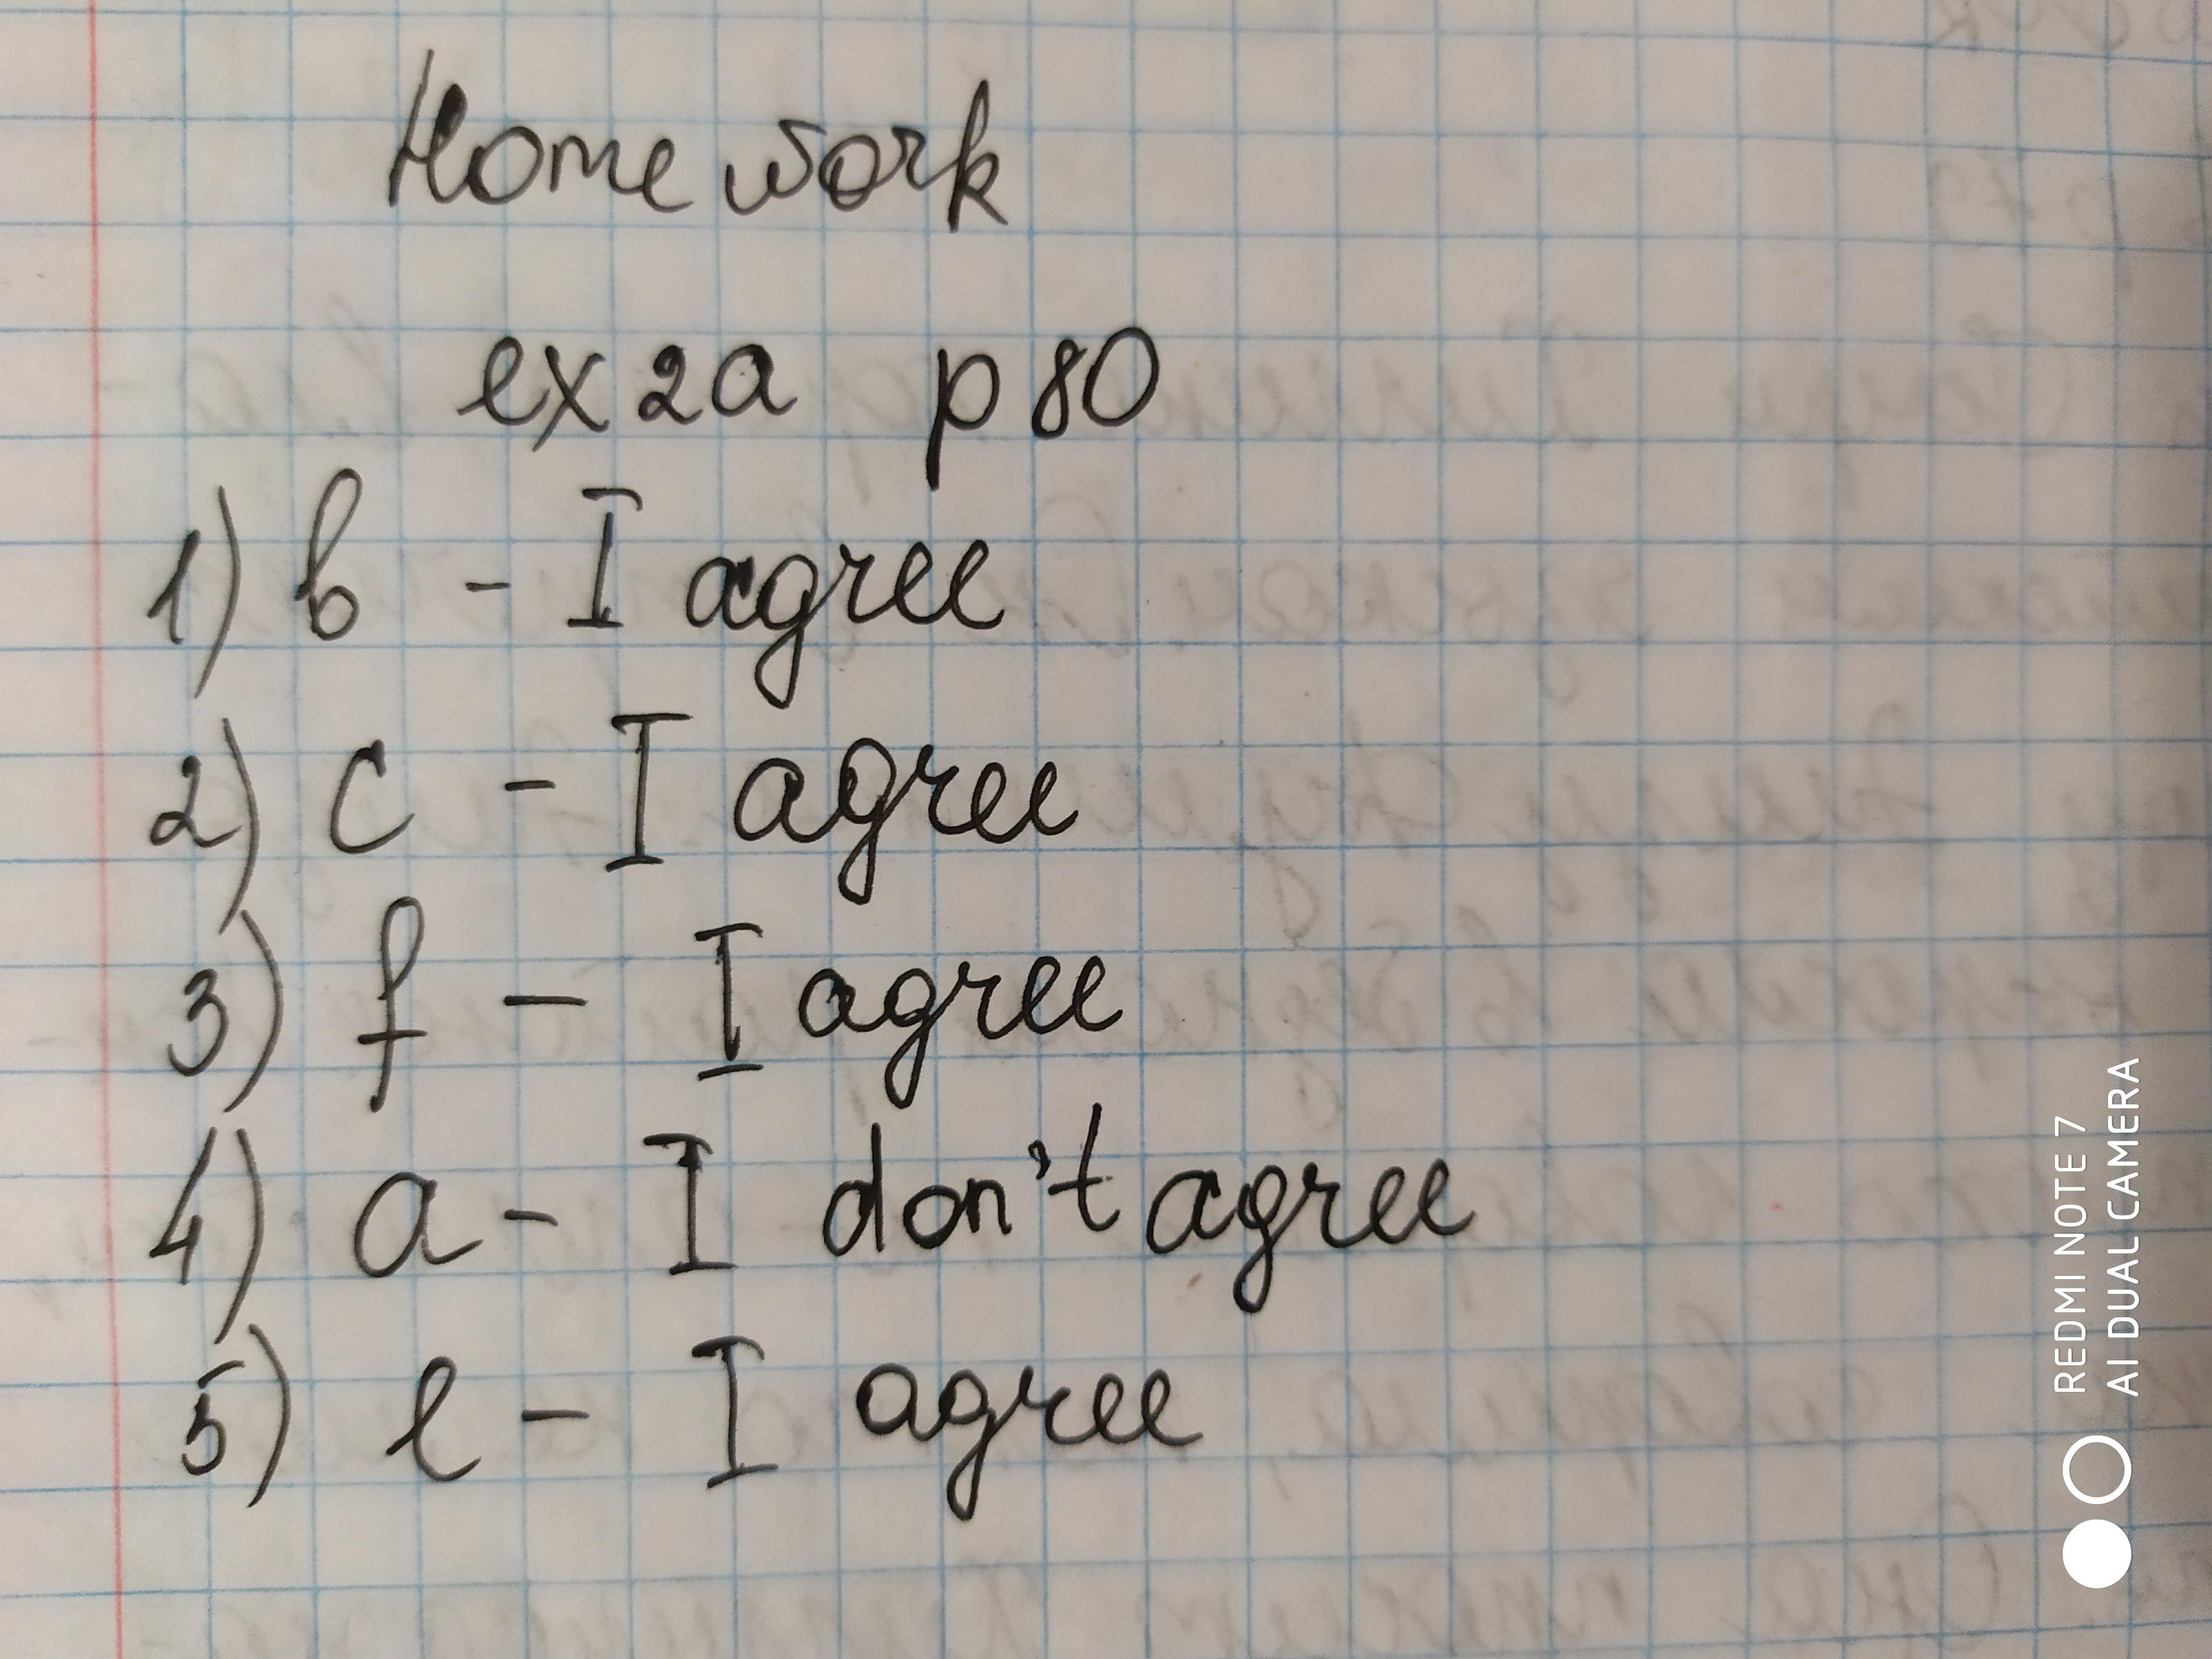 Home work
ex 2a p 80
1) b - I agree
2) c - I agree
3) f - I agree
4) a - I don't agree
5) e - I agree
REDMI NOTE 7
AI DUAL CAMERA